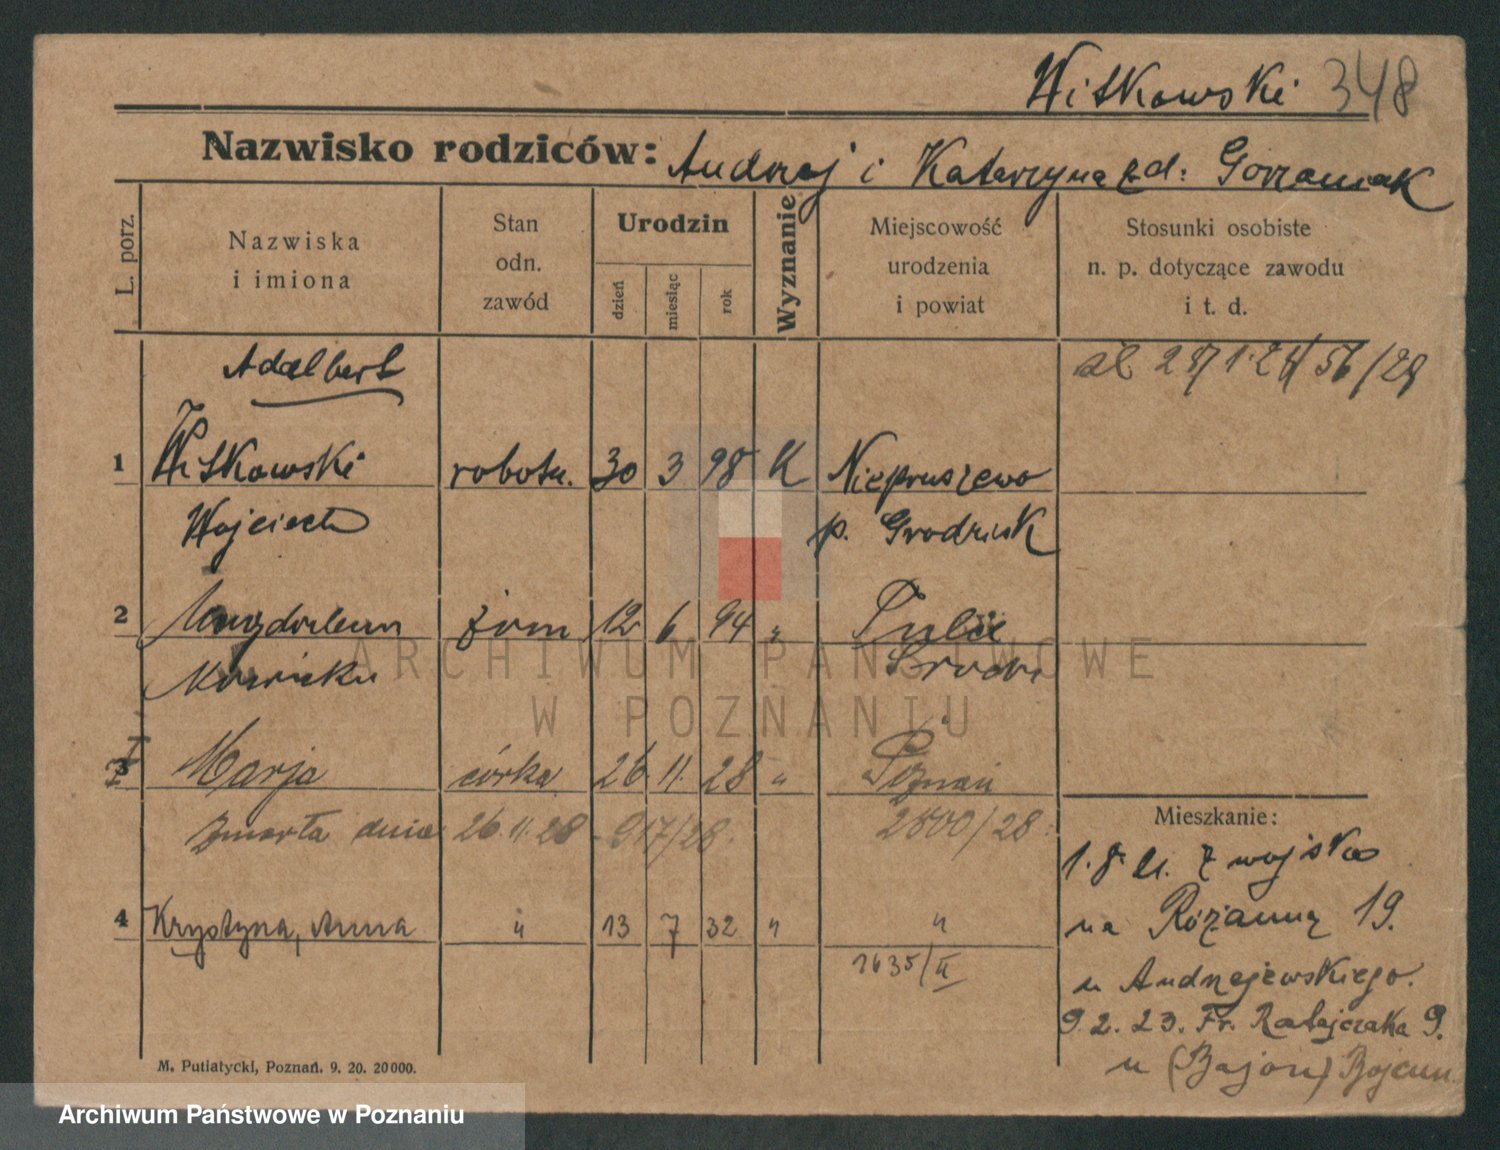 Witkowski 348
Nazwisko rodziców: Andrzej i Katarzyna z d: Gorzaniak
L. porz.
Nazwiska
i imiona
Stan
odn.
zawód
Urodzin
dzień
miesiąc
rok
Wyznanie
Miejscowość
urodzenia
i powiat
Stosunki osobiste
n. p. dotyczące zawodu
i t. d.
Adalbert
56/29
1 Witkowski robotn. 30 3 98 K Niepruszewo
Wojciech p. Grodzisk
2 Magdalena żona 12 6 94 "
Nowicka Środa
3 Marja córka 26 11. 28 " Poznań
Zmarła dnia 26.11.28 - 917/28. 2800/28.
4 Krystyna, Anna " 13 7 32 " "
1635/II
Mieszkanie:
1.8.21. z wojska
na Różanną 19.
u Andrzejewskiego.
9.2.23. Fr. Ratajczaka 9.
u (Bajon)
M. Putiatycki, Poznań. 9. 20. 20000.
ARCHIWUM PAŃSTWOWE
W POZNANIU
Archiwum Państwowe w Poznaniu